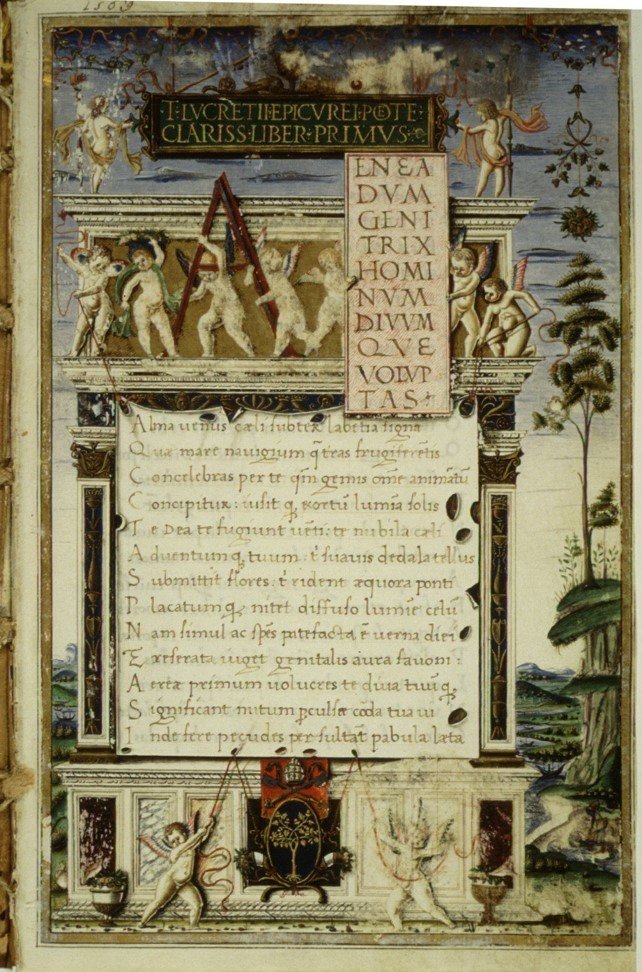 T·LVCRETII·EPICVREI·POETE·
CLARISS·LIBER·PRIMVS·
A
ENEA
DVM
GENI
TRIX
HOMI
NVM
DIVVM
QVE
VOLVP
TAS
Alma venus cæli subter labētia signa
Quæ mare navigium q̄ tras frugiferētis
Concelebras per te qm̄ gemis om̄e animātū
Concipitur: uisit q; exortū lumīa solis
Te Dea te fugiunt vēti: te nubila cæli
Aduentumq; tuum: t' suauis dedala tellus
Submittit flores: t' rident æquora ponti
Placatumq; nitet diffuso lumīe celū
Nam simul ac spēs patefacta ē verna diei
Et reserata uiget genitalis aura favoni:
Aereæ primum volucres te diva tuū q;
Significant initum perculsæ corda tua ui
Inde fere pecudes per sultāt pabula læta